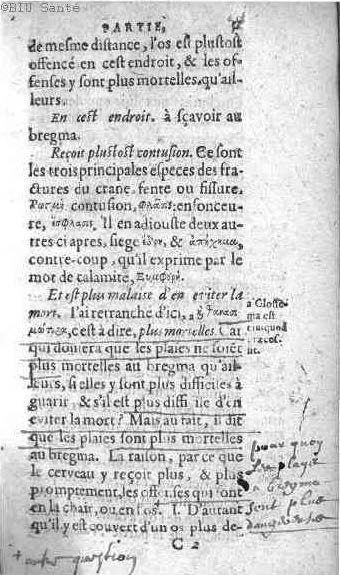 ©BIU Santé
PARTIE.
de mesme distance, l'os est plustost
offencé en cest endroit, & les of-
fenses y sont plus mortelles, qu'ail-
leurs.
En cest endroit. à sçavoir au
bregma.
Reçoit plustost contusion. Ce sont
les trois principales especes des fra-
ctures du crane, fente ou fissure,
contusion, enfonceu-
re, Il en adiouste deux au-
tres ci apres, siege & 
contre-coup, qu'il exprime par le
mot de calamité,
Et est plus malaise d'en eviter la
mort. I'ai retranché d'ici,
c'est à dire, plus mortelles. Car
qui doutera que les plaies ne soiēt
plus mortelles au bregma qu'ail-
leurs, si elles y sont plus difficiles à
guarir, & s'il est plus diffi ile d'en
eviter la mort? Mais au fait, il dit
que les plaies sont plus mortelles
au bregma. La raison, par ce que
le cerveau y reçoit plus, & plus
promptement, les offenses qui sont
en la chair, ou en l'os. I. D'autant
qu'il y est couvert d'un os plus de-
C 2
a Glosse-
ma est
pour quoy
bregma
sont plus
autre question